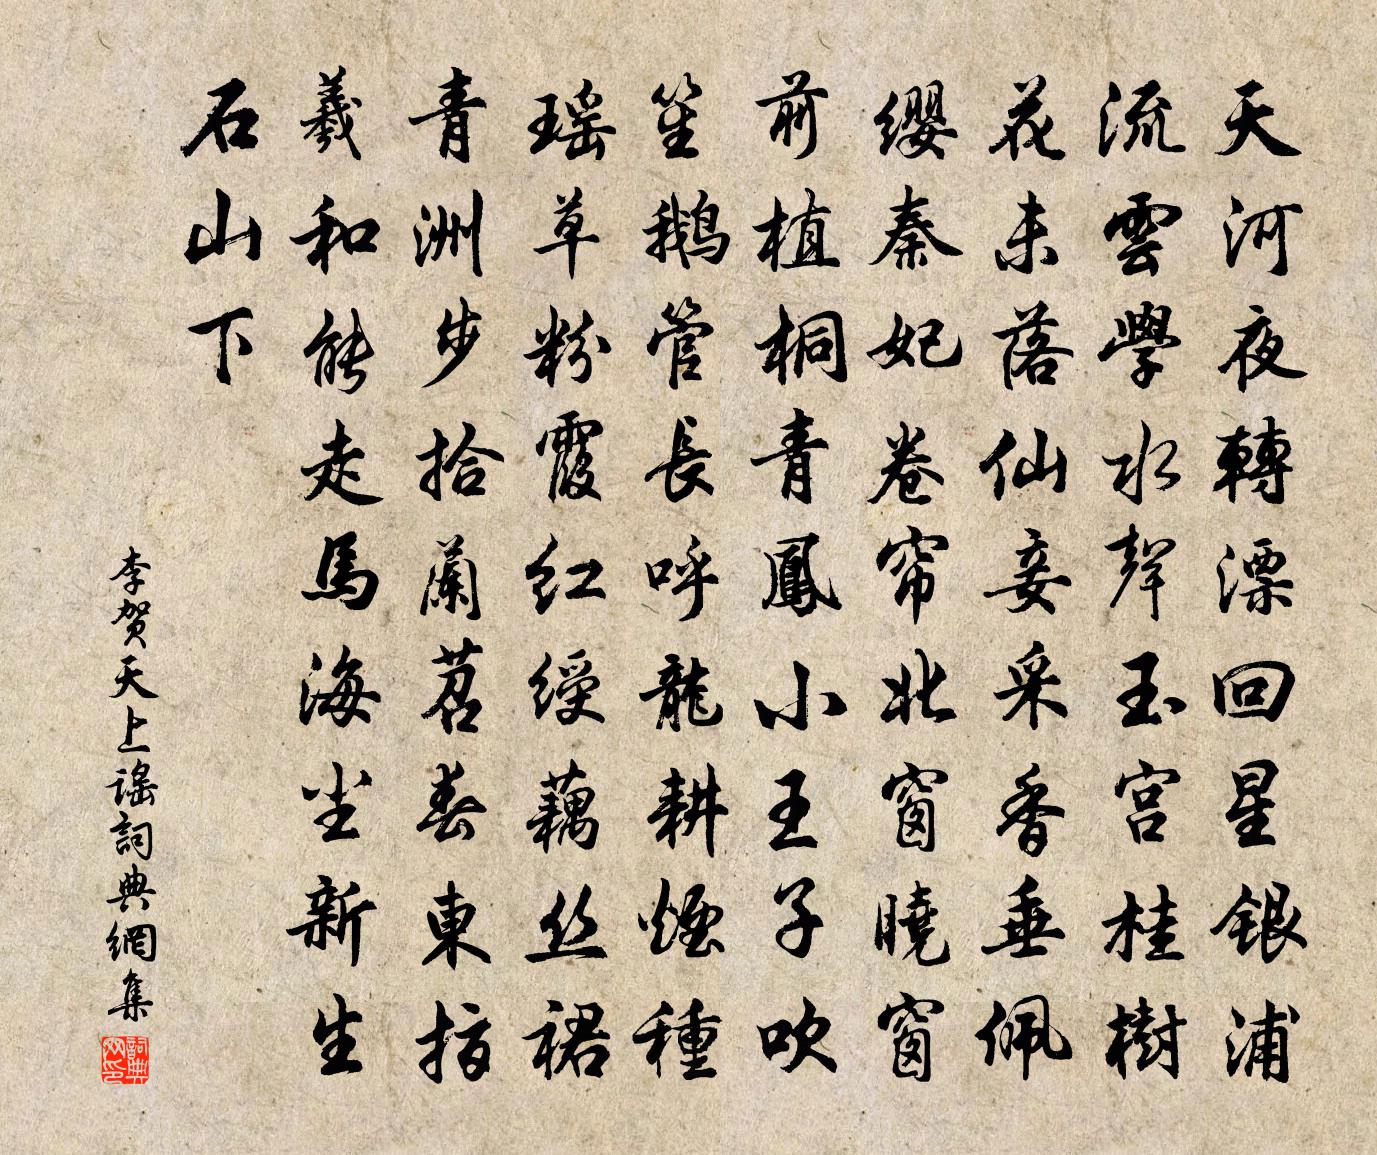 天河夜轉漂回星銀浦
流雲學水聲玉宮桂樹
花未落仙妾采香垂佩
缨秦妃卷帘北窗曉窗
前植桐青鳳小王子吹
笙鹅管長呼龍耕煙種
瑶草粉霞红绶藕丝裙
青洲步拾蘭苕春東指
羲和能走馬海尘新生
石山下
李贺天上謠詞典網集
詞典网印